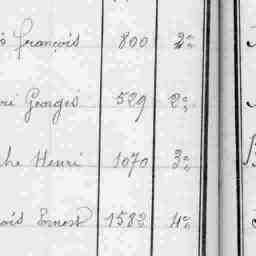 François 800 2e
Georges 529 2e
Henri 1070 3e
Ernest 1582 4e